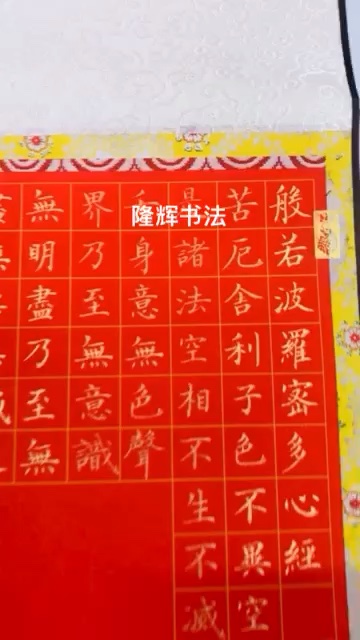 般若波羅密多心經
苦厄舍利子色不異空
是諸法空相不生不滅
身意無色聲
界乃至無意識
無明盡乃至無
隆辉书法